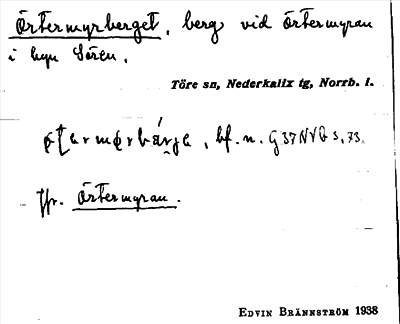 Örtermyrberget, berg vid Örtermyran
i byn Sören.
Töre sn, Nederkalix tg, Norrb. l.
bf. n. G 37 NVG s. 73.
Jfr. Örtermyran.
EDVIN BRÄNNSTRÖM 1938